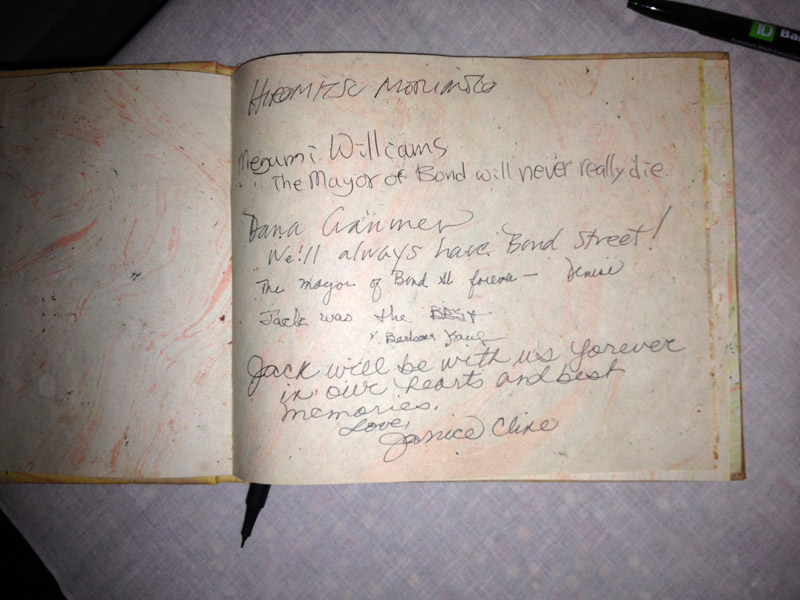 TD Ba
HIROMITSU MORIMOTO
Megumi Williams
The Mayor of Bond will never really die.
Dana
We'll always have Bond Street!
The mayor of Bond St forever – Denise
Jack was the BEST
Barbara
Jack will be with us forever
in our hearts and best
memories.
Love,
Janice Cline